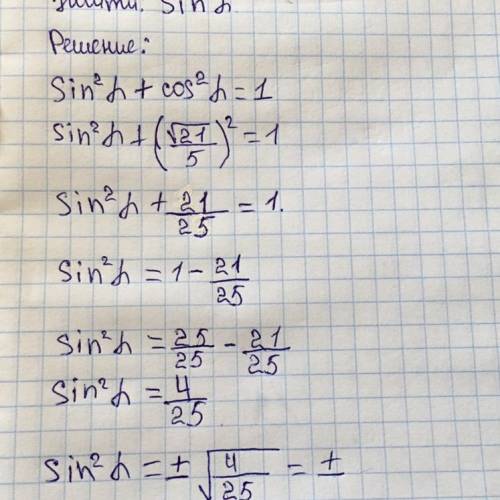 Sin α
Решение:
Sin²α + cos²α = 1
Sin²α + (√21/5)² = 1
Sin²α + 21/25 = 1.
Sin²α = 1 - 21/25
Sin²α = 25/25 - 21/25
Sin²α = 4/25
Sin²α = ± √4/25 = ±